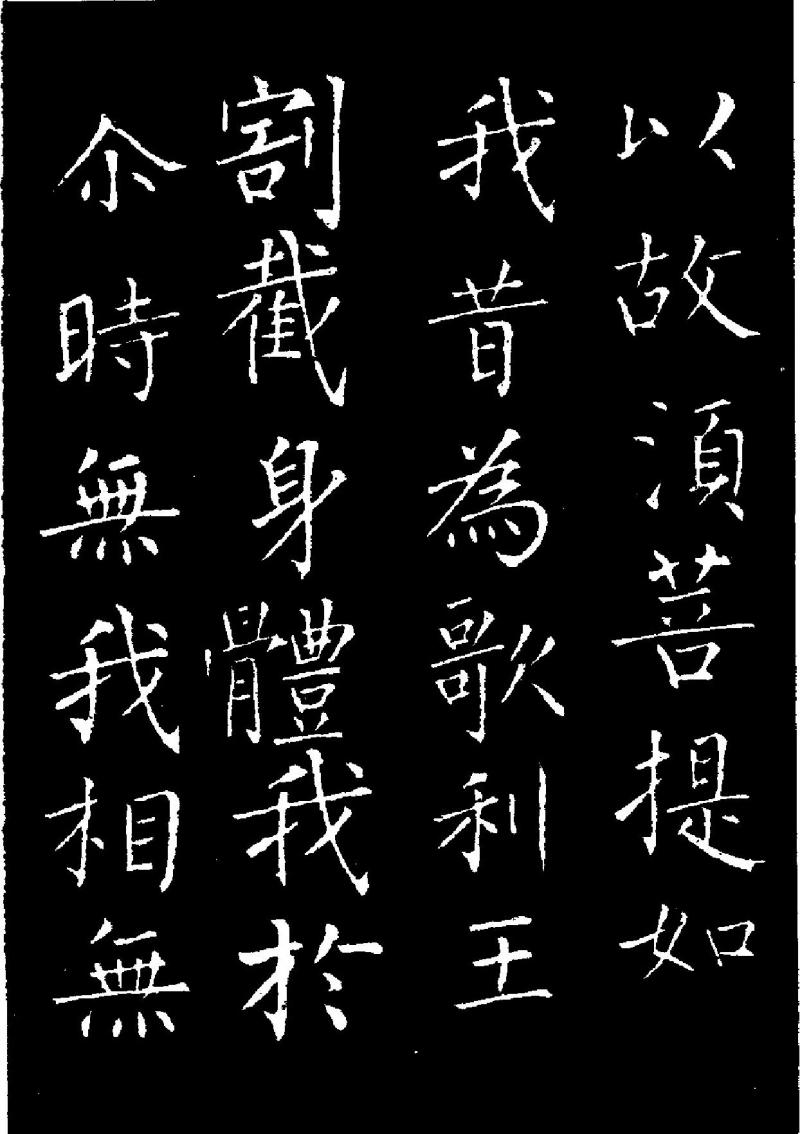 以故須菩提如
我昔為歌利王
割截身體我於
尒時無我相無